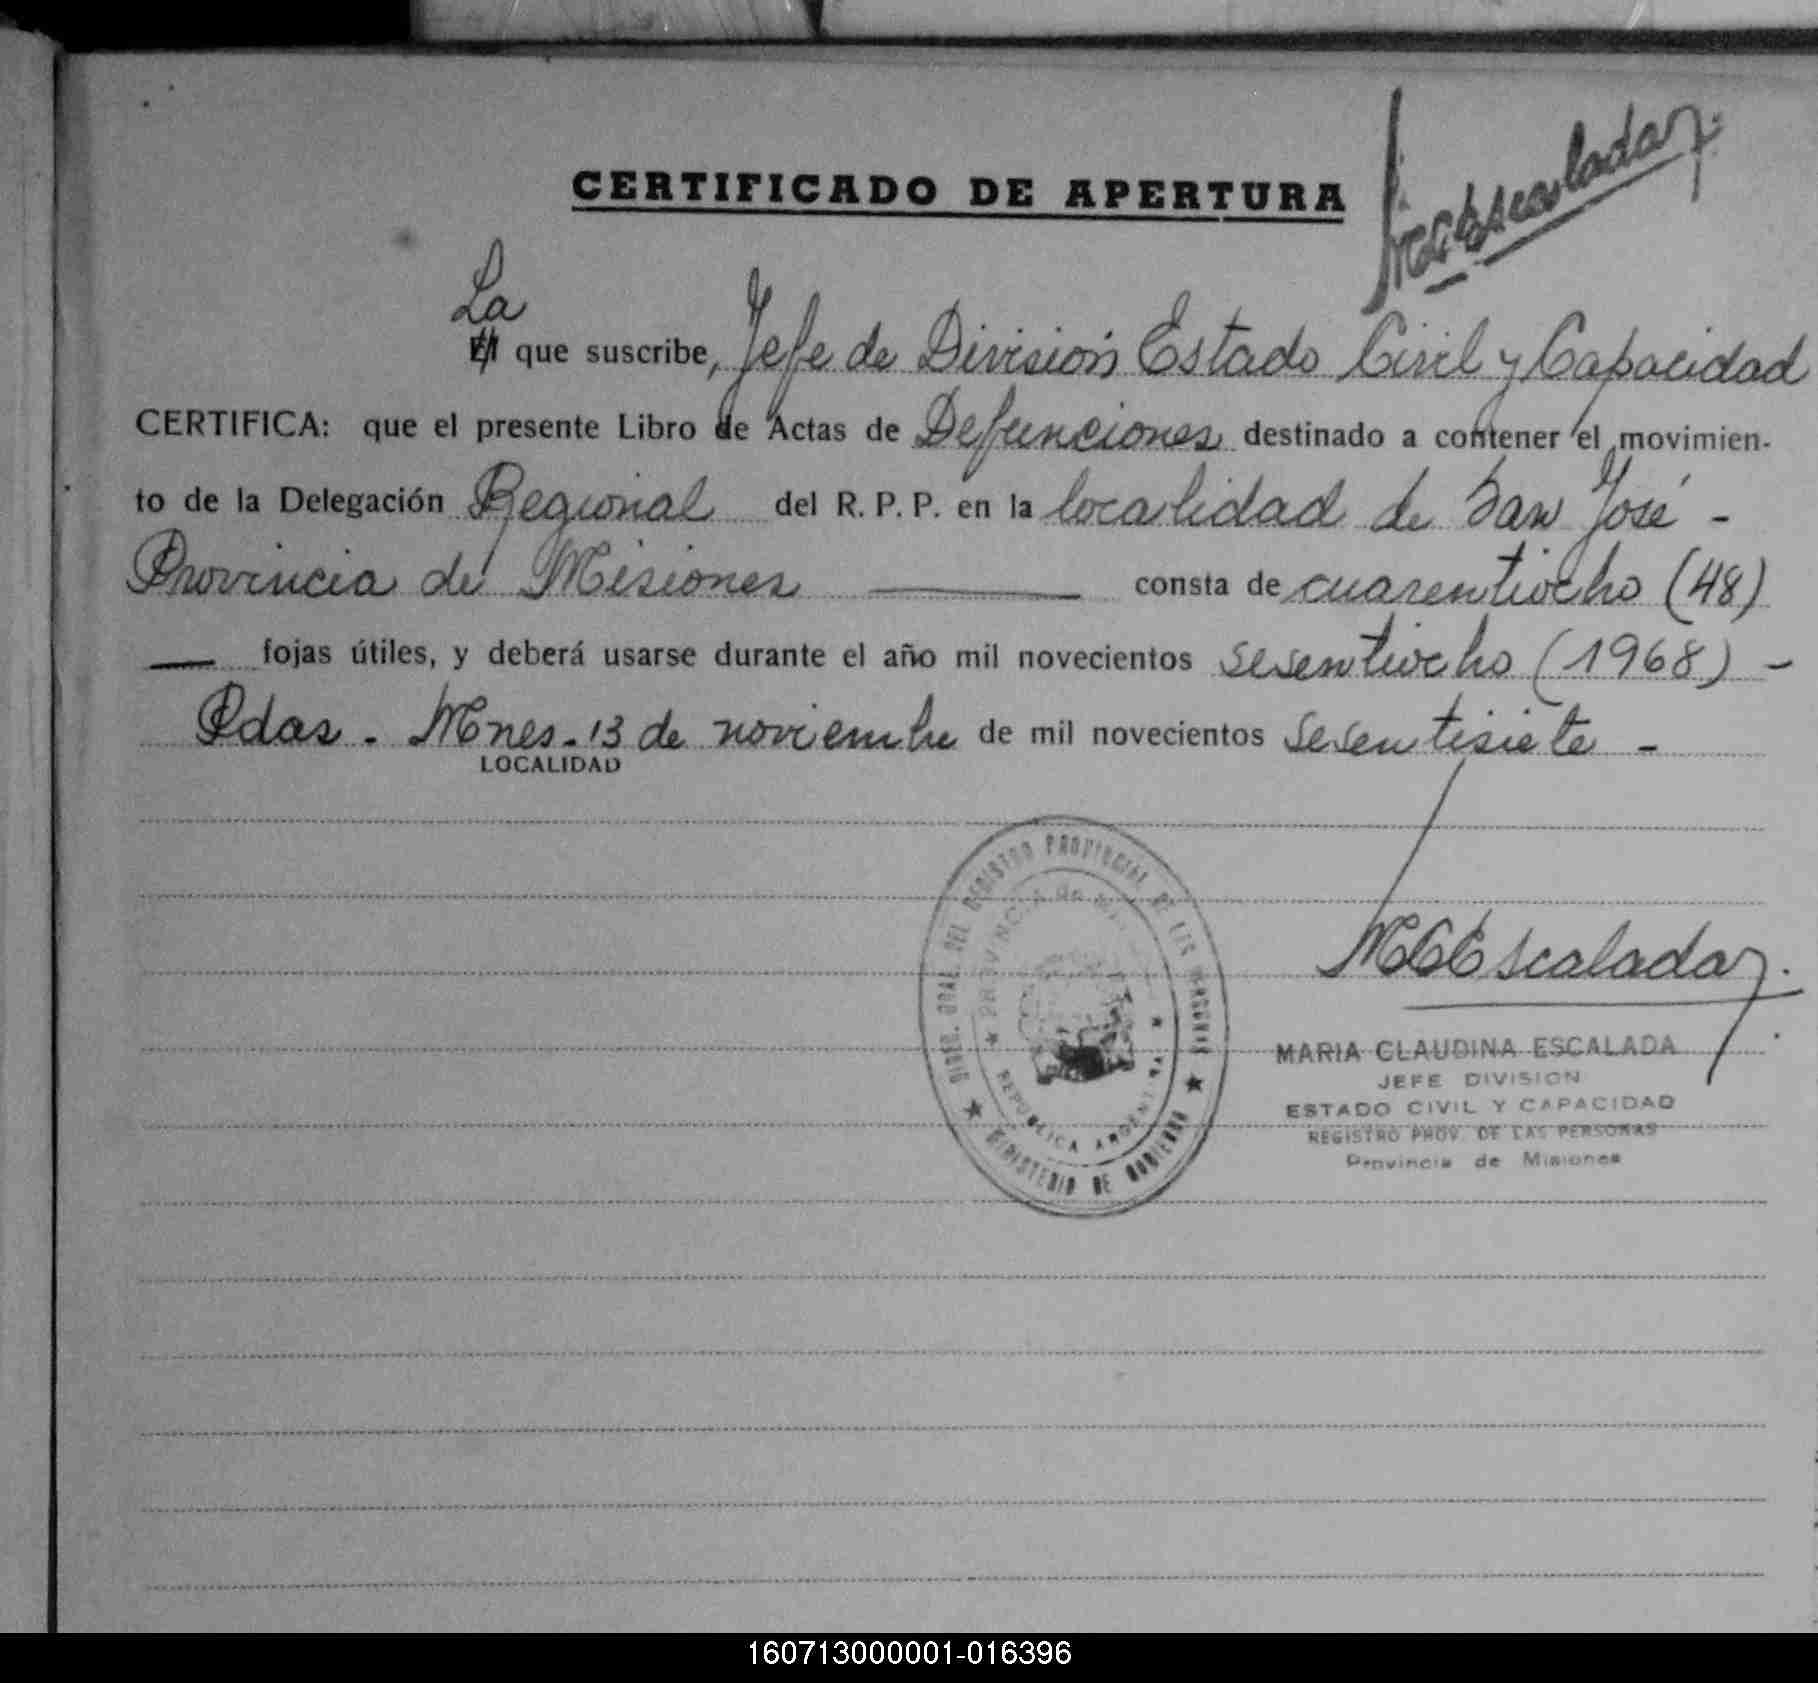 CERTIFICADO DE APERTURA
MCEscalada
La
El que suscribe, Jefe de División Estado Civil y Capacidad
CERTIFICA: que el presente Libro de Actas de Defunciones destinado a contener el movimien-
to de la Delegación Regional del R. P. P. en la localidad de San José -
Provincia de Misiones consta de cuarentiocho (48)
fojas útiles, y deberá usarse durante el año mil novecientos sesentiocho (1968) -
Pdas. Mnes. 13 de noviembre de mil novecientos sesentisiete -
LOCALIDAD
DIREC. GRAL. DEL REGISTRO PROVINCIAL DE LAS PERSONAS
MINISTERIO DE GOBIERNO
PROVINCIA de
REPUBLICA ARGENTINA
MCEscalada
MARIA CLAUDINA ESCALADA
JEFE DIVISION
ESTADO CIVIL Y CAPACIDAD
REGISTRO PROV. DE LAS PERSONAS
Provincia de Misiones
160713000001-016396